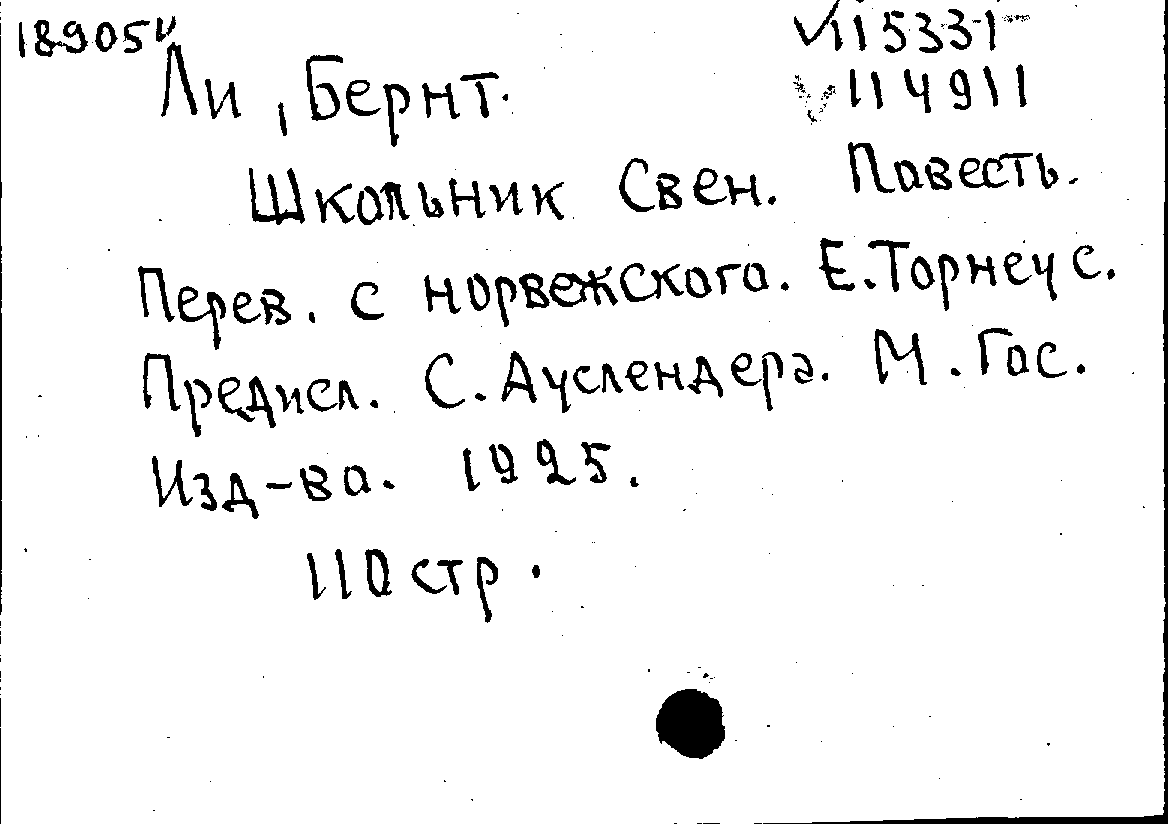 18905 V
V 115331
V 114911
Ли, Бернт.
Школьник Свен. Повесть.
Перев. с норвежского. Е. Торнеус.
Предисл. С. Ауслендера. М. Гос.
Изд-ва. 1925.
110 стр.